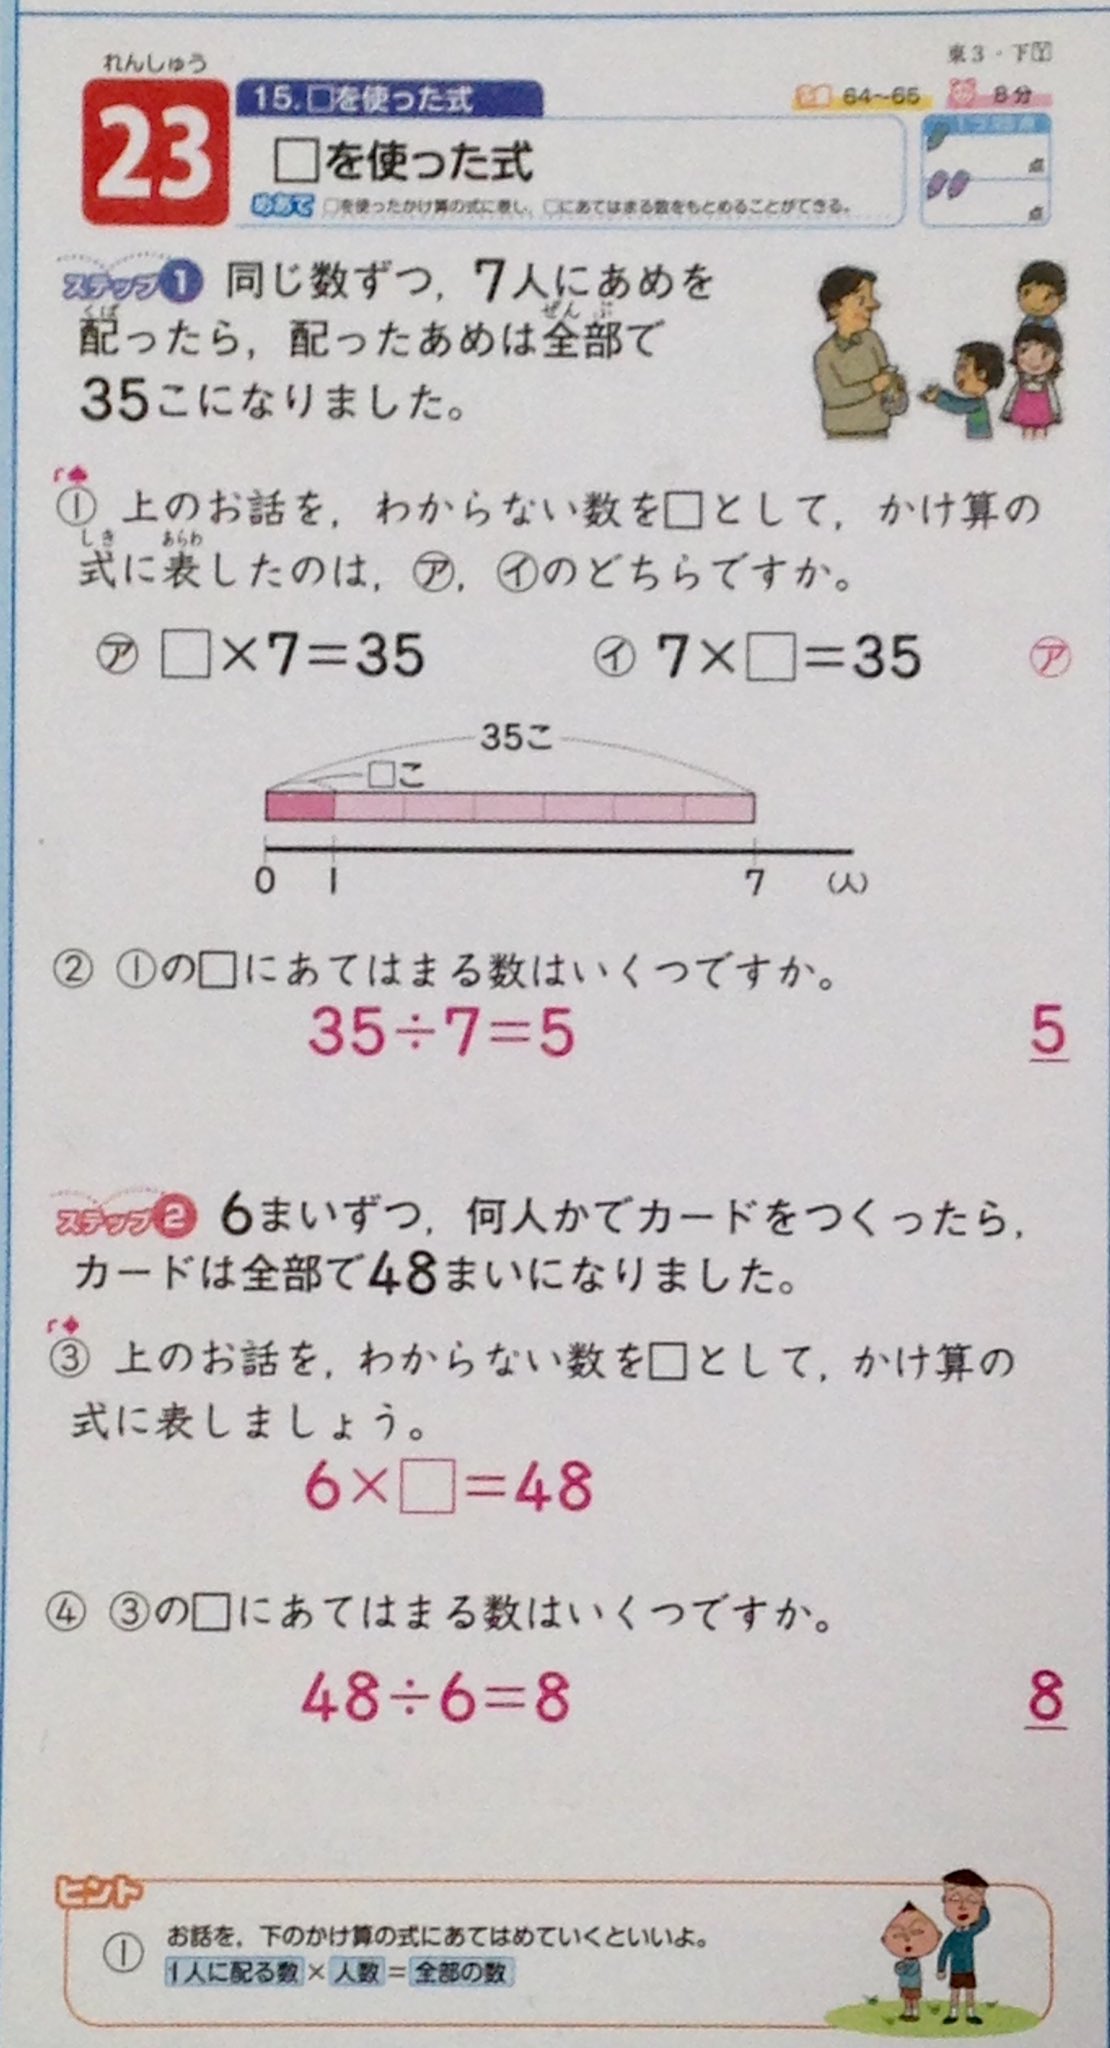 れんしゅう
東3・下Y
23
15.□を使った式
64~65
8分
□を使った式
めあて □を使ったかけ算の式に表し、□にあてはまる数をもとめることができる。
点
点
ステップ1 同じ数ずつ，7人にあめを
くば ぜん ぶ
配ったら，配ったあめは全部で
35こになりました。
① 上のお話を，わからない数を□として，かけ算の
しき あらわ
式に表したのは，㋐，㋑のどちらですか。
㋐ □×7=35 ㋑ 7×□=35 ㋐
35こ
□こ
0 1 7 (人)
② ①の□にあてはまる数はいくつですか。
35÷7=5 5
ステップ2 6まいずつ，何人かでカードをつくったら，
カードは全部で48まいになりました。
③ 上のお話を，わからない数を□として，かけ算の
式に表しましょう。
6×□=48
④ ③の□にあてはまる数はいくつですか。
48÷6=8 8
ヒント
① お話を，下のかけ算の式にあてはめていくといいよ。
1人に配る数×人数=全部の数